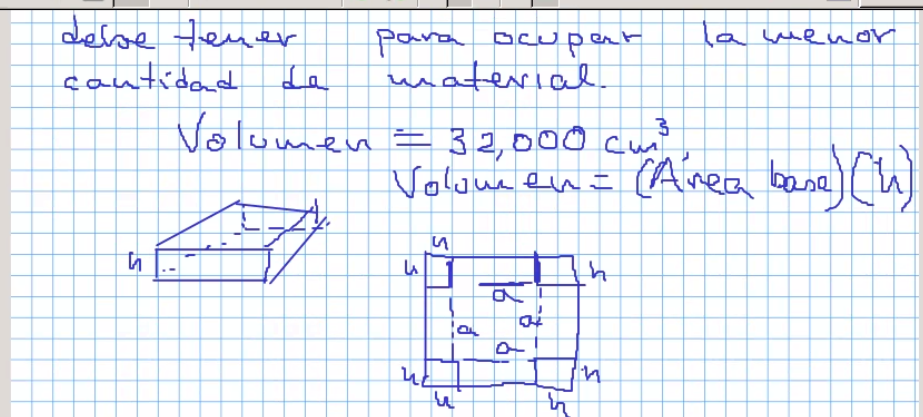 debe tener para ocupar la menor
cantidad de material.
Volumen = 32,000 cm³
Volumen = (Área base)(h)
h
h
h h
a
a a
a
h h
h h